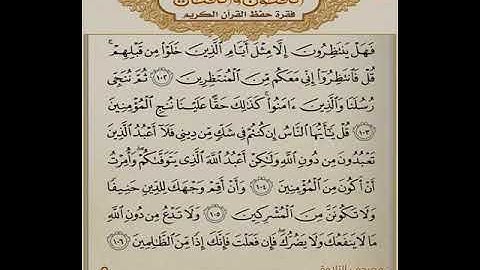 فقرة حفظ القرآن الكريم
فَهَلْ يَنتَظِرُونَ إِلَّا مِثْلَ أَيَّامِ الَّذِينَ خَلَوْا مِن قَبْلِهِمْ ۚ
قُلْ فَانتَظِرُوا إِنِّي مَعَكُم مِّنَ الْمُنتَظِرِينَ ١٠٢ ثُمَّ نُنَجِّي
رُسُلَنَا وَالَّذِينَ ءَامَنُوا ۚ كَذَٰلِكَ حَقًّا عَلَيْنَا نُنجِ الْمُؤْمِنِينَ
١٠٣ قُلْ يَٰأَيُّهَا النَّاسُ إِن كُنتُمْ فِي شَكٍّ مِّن دِينِي فَلَا أَعْبُدُ الَّذِينَ
تَعْبُدُونَ مِن دُونِ اللَّهِ وَلَٰكِنْ أَعْبُدُ اللَّهَ الَّذِي يَتَوَفَّىٰكُمْ ۖ وَأُمِرْتُ
أَنْ أَكُونَ مِنَ الْمُؤْمِنِينَ ١٠٤ وَأَنْ أَقِمْ وَجْهَكَ لِلدِّينِ حَنِيفًا
وَلَا تَكُونَنَّ مِنَ الْمُشْرِكِينَ ١٠٥ وَلَا تَدْعُ مِن دُونِ اللَّهِ
مَا لَا يَنفَعُكَ وَلَا يَضُرُّكَ ۖ فَإِن فَعَلْتَ فَإِنَّكَ إِذًا مِّنَ الظَّٰلِمِينَ ١٠٦